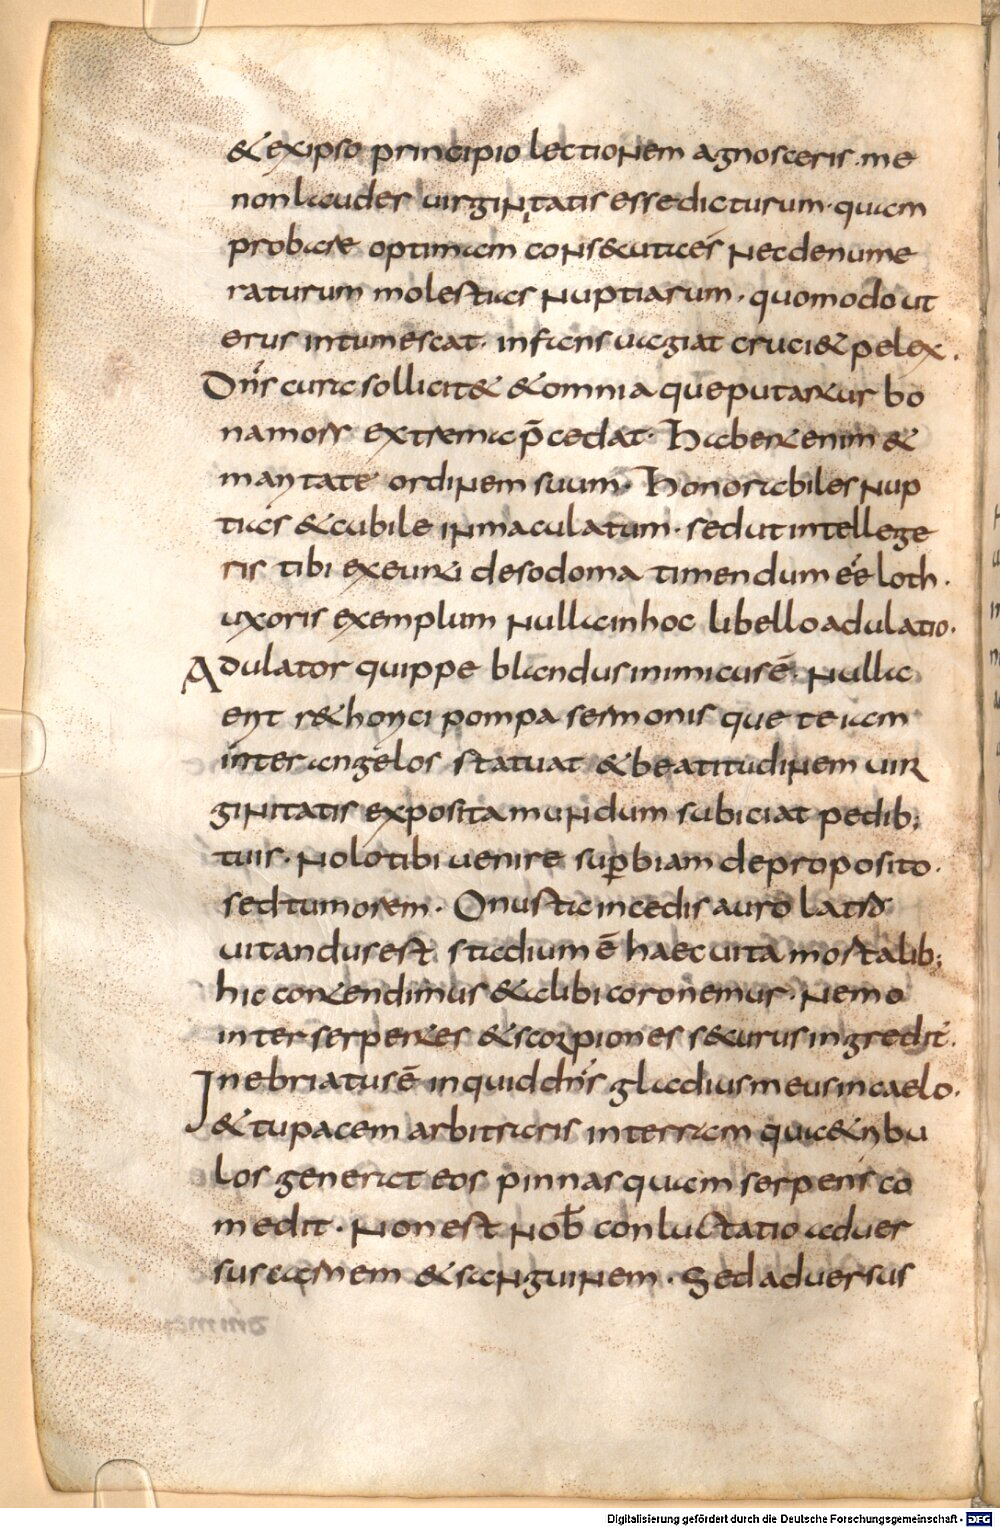 & exipso principio lectionem agnosceris · me
non laudes uirginitatis esse dicturum · quam
probare optimam consecutaes nec denume
raturum molestias nuptiarum · quomodo ut
erus intumescat · infans uagiat cruci& pelex ·
Dm̄s cura sollicit& & omnia que putantur bo
na mors extrema p̄cedat · Habent enim &
maritate ordinem suum · Honorabiles nup
tiaes & cubile inmaculatum · sed ut intellege
ris tibi exeunti de sodoma timendum eē loth ·
uxoris exemplum nulla in hoc libello adulatio ·
Adulator quippe blandus inimicus ē · Nulla
erit r&horici pompa sermonis que te iam
inter angelos statuat & beatitudinem uir
ginitatis exposita mundum subiciat pedib;
tuis · Nolo tibi uenire sup̱biam de proposito ·
sed tumorem · Onusta incedis auro latro
uitandus est stadium ē haec uita mortalib;
hic contendimus & alibi coronemur · Nemo
inter serpentes & scorpiones securus ingredit̄ ·
Inebriatus ē inquid dn̄s gladius meus in caelo ·
& tu pacem arbitraris in terram que & ribu
los generat eos pinnas quam serpens co
medit · Non est nob̄ conluctatio aduer
sus carnem & sanguinem · Sed aduersus
Digitalisierung gefördert durch die Deutsche Forschungsgemeinschaft - DFG